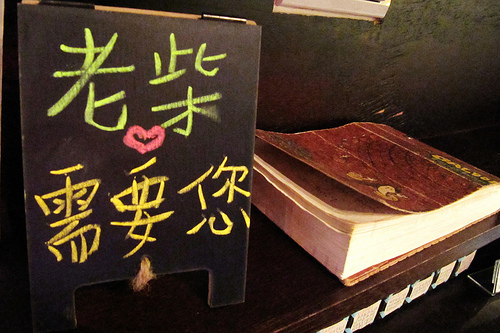 老柴
需要您